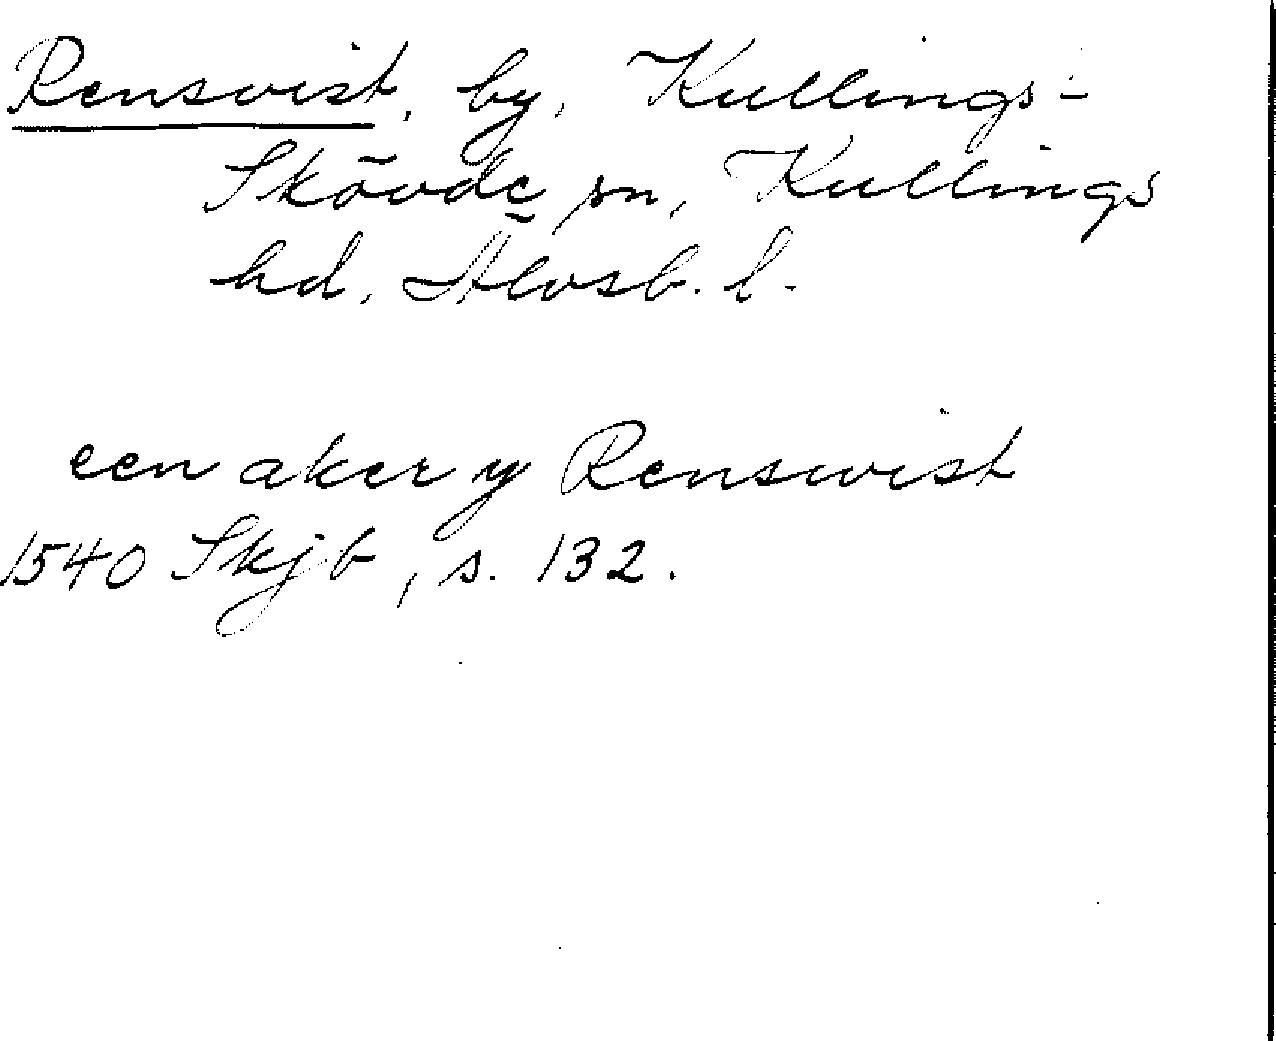 Rensvist, by, Kullings-
Skövde sn, Kullings
hd, Älvsb. l.
een aker y Renswist
1540 Skjb, s. 132.